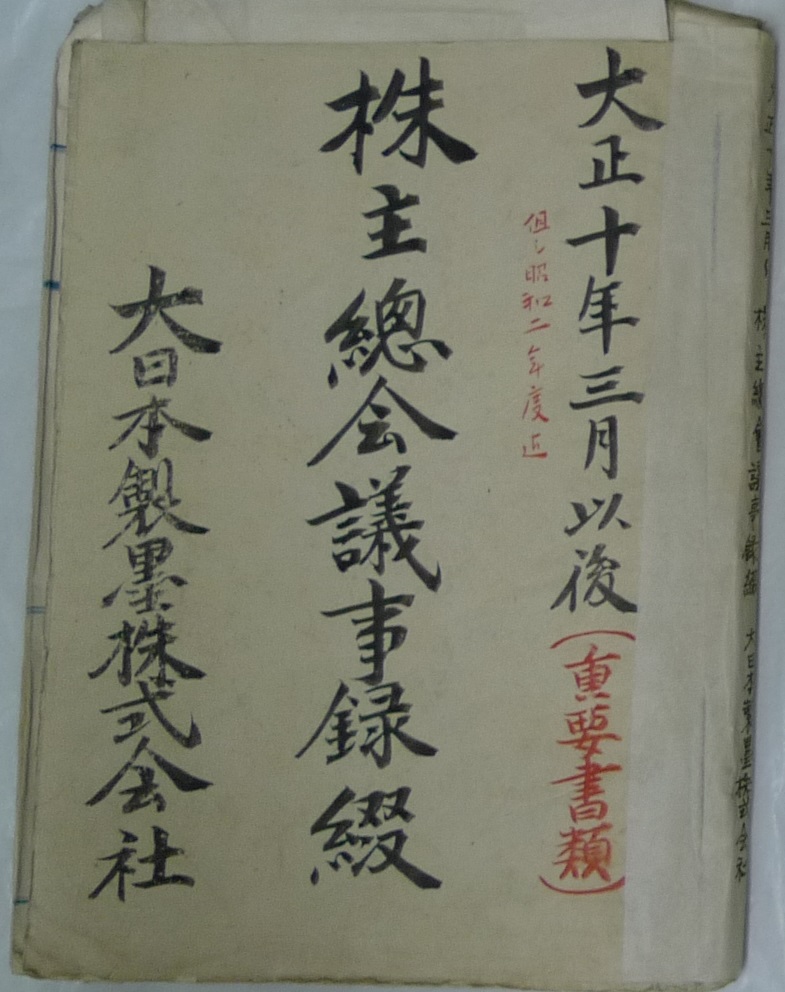 大正十年三月以後（重要書類）
但シ昭和二年度迄
株主總会議事録綴
大日本製墨株式会社
大正十年三月以後 株主總會議事録綴 大日本製墨株式会社